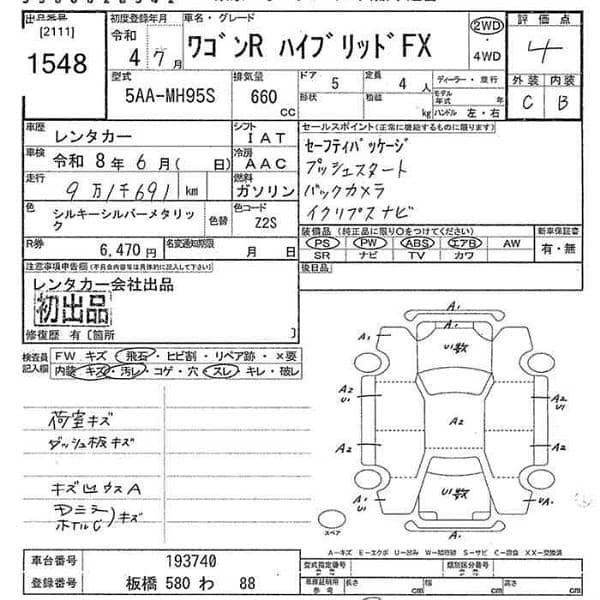 [2111]
1548
初度登録年月
令和
4 7月
車名・グレード
ワゴンR ハイブリッドFX
2WD
・
4WD
評価点
4
型式
5AA-MH95S
排気量
660
CC
ドア 5
形状
定員 4
積載 kg
ディーラー・並行
モデル年式 年
ハンドル 左・右
外装 内装
C B
車歴 レンタカー
シフト IAT
車検 令和 8年 6月( 日)
冷房 AAC
走行 9万1千691 km
燃料 ガソリン
色 シルキーシルバーメタリック
色替
色コード Z2S
R券 6,470円
名変通知期限 月 日
セールスポイント(正常に機能するものに限ります)
セーフティパッケージ
プッシュスタート
バックカメラ
イクリプスナビ
装備品(純正品に限り〇をつけてください)
新車保証書
PS PW ABS エアB AW
有・無
SR ナビ TV カワ
後日品
注意事項申告欄(不具合内容等は具体的に記入して下さい)
レンタカー会社出品
初出品
修復歴 有〔箇所 〕
検査員記入欄
FW キズ・飛石・ヒビ割・リペア跡・×要
内装・キズ・汚レ・コゲ・穴・スレ・キレ・破レ
荷室キズ
ダッシュ板キズ
キズ凹ウスA
キズ
A1
A1 U1数 A1
A2 U1 A2 U1
A2 A2 A2
U1数 UA1
スペア
A1
A-キズ E-エクボ U-凹み W-補修跡 S-サビ C-腐食 XX-交換済
車台番号 193740
登録番号 板橋 580 わ 88
型式指定番号
類別区分番号
車庫証明用参考
長さ cm
幅 cm
高さ cm